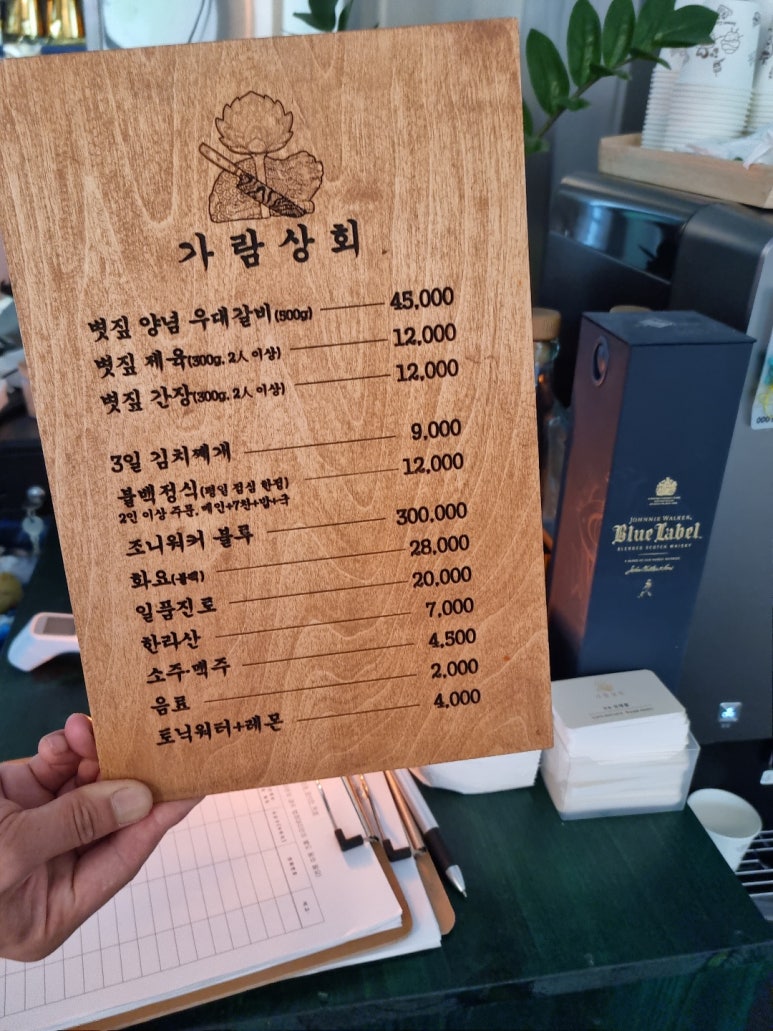 가람상회
볏짚 양념 우대갈비(500g) 45,000
볏짚 제육(300g, 2人 이상) 12,000
볏짚 간장(300g, 2人 이상) 12,000
3일 김치찌개 9,000
불백정식(평일 점심 한정) 12,000
2인 이상 주문, 메인+7찬+밥+국
조니워커 블루 300,000
화요(블랙) 28,000
일품진로 20,000
한라산 7,000
소주·맥주 4,500
음료 2,000
토닉워터+레몬 4,000
JOHNNIE WALKER
Blue Label
BLENDED SCOTCH WHISKY